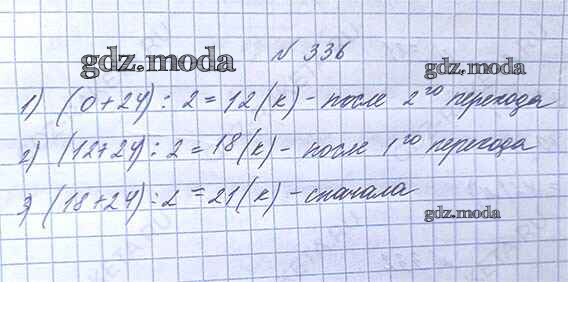 gdz.moda
№ 336
1) (0+24) : 2 = 12 (к) - после 2го перехода
2) (12+24) : 2 = 18 (к) - после 1го перехода
3) (18+24) : 2 = 21 (к) - сначала
gdz.moda